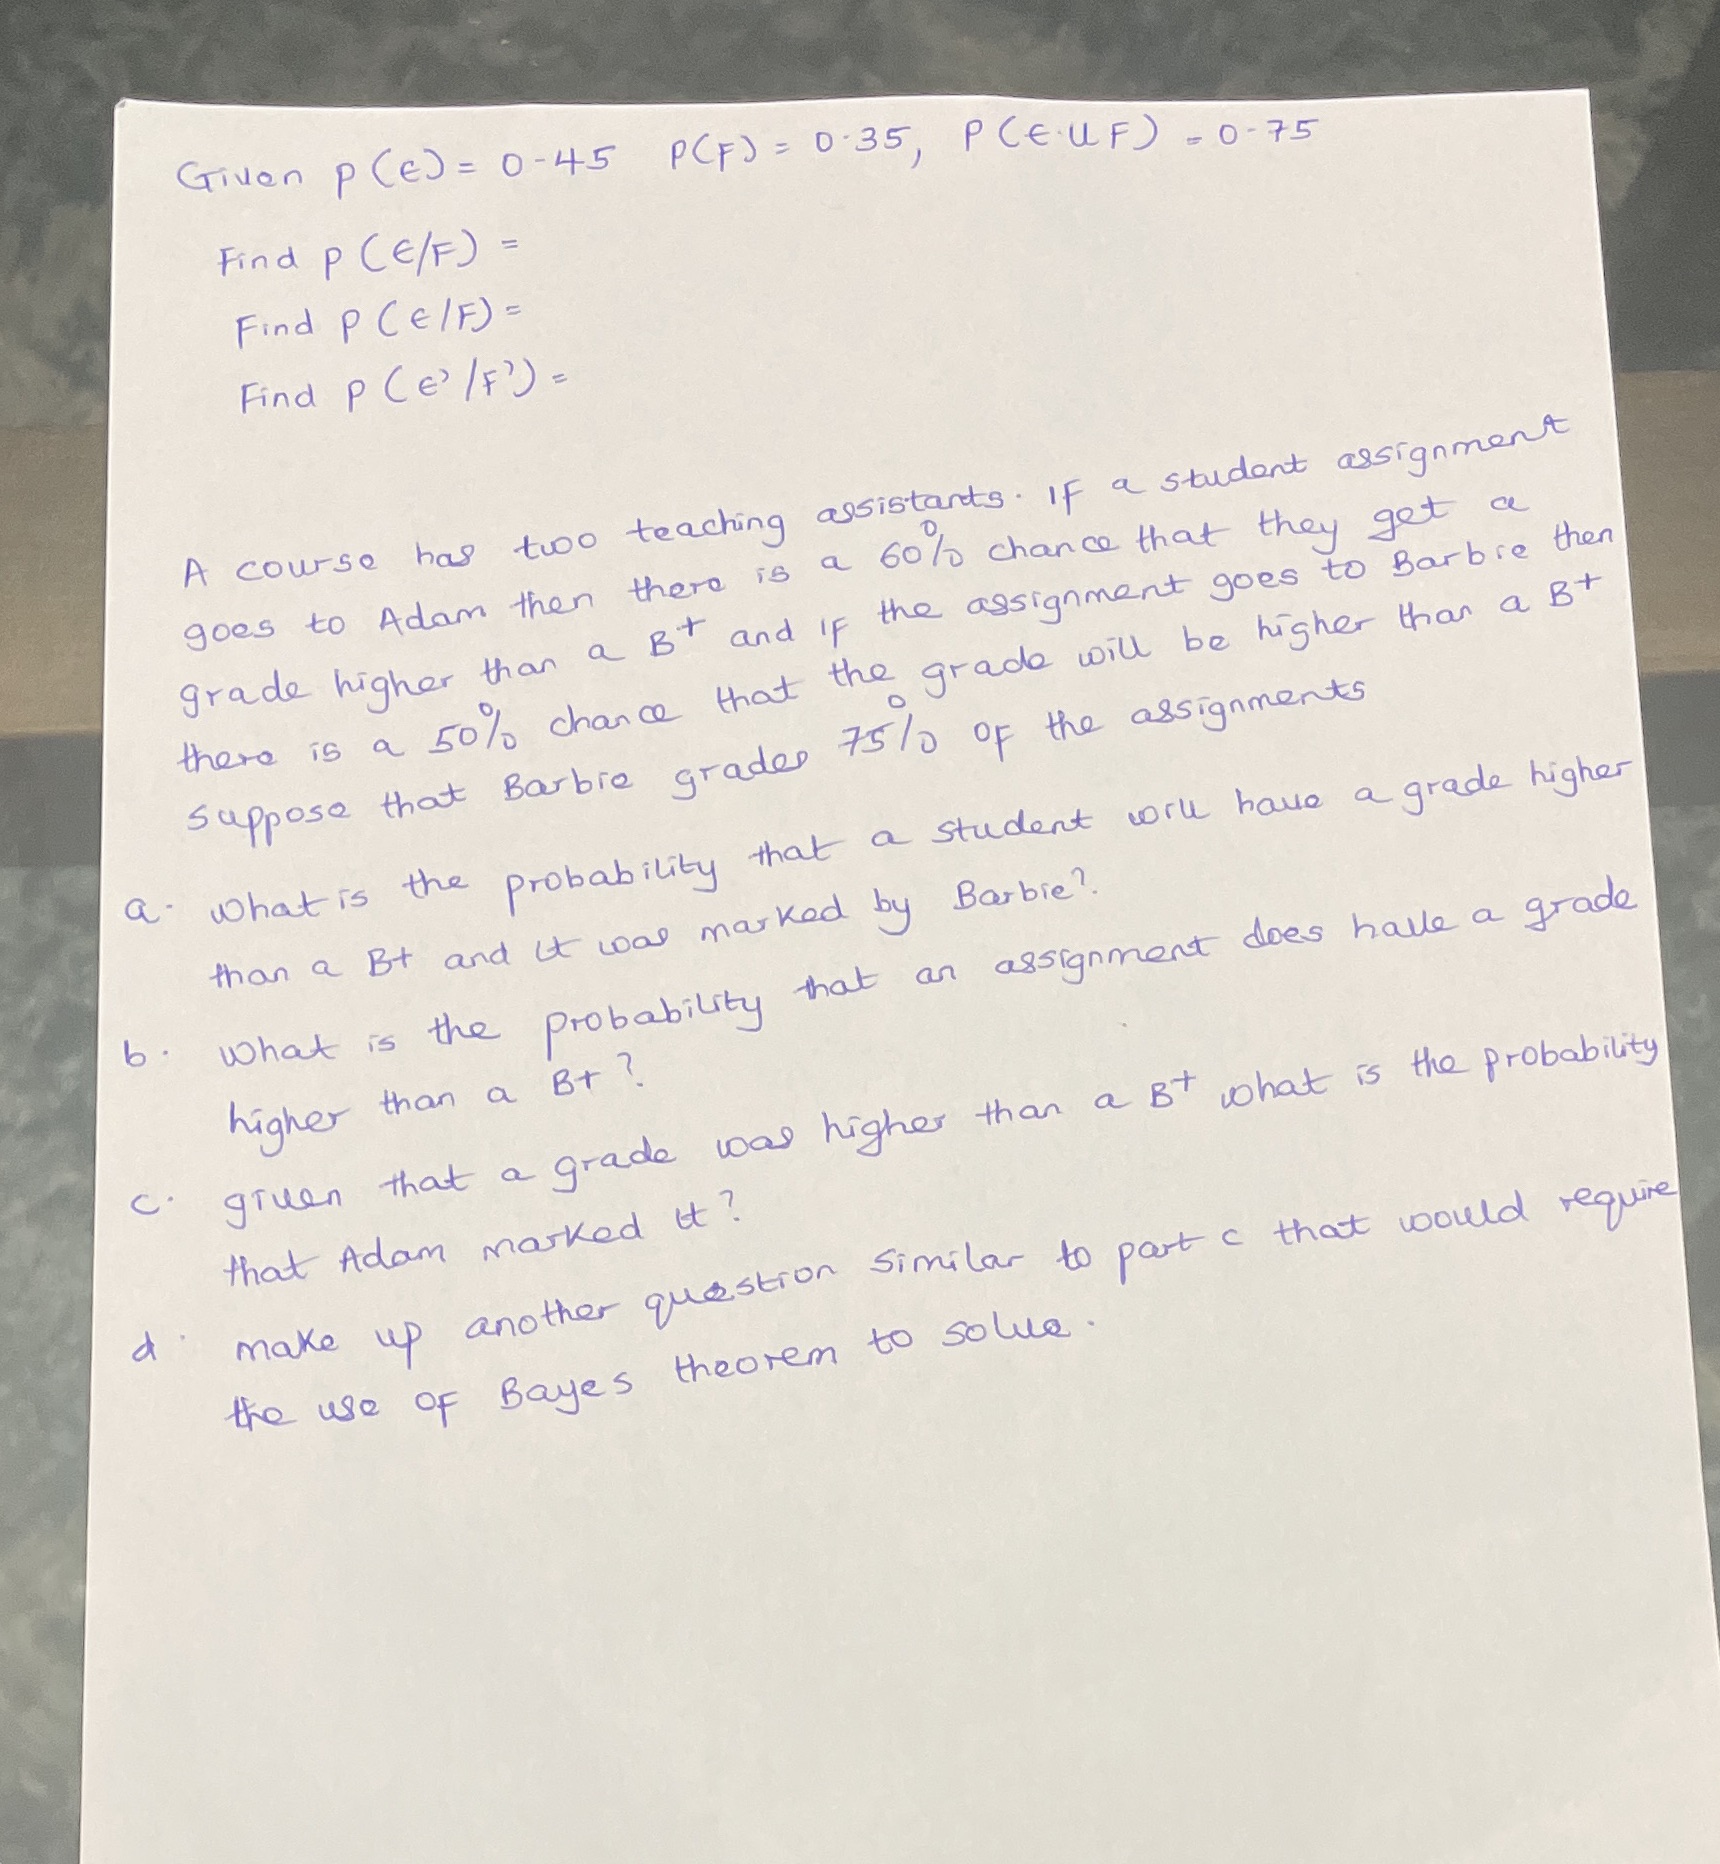 Given P(E) = 0.45 P(F) = 0.35, P(E∪F) = 0.75
Find P(E/F) =
Find P(E/F) =
Find P(E'/F') =
A course has two teaching assistants. If a student assignment
goes to Adam then there is a 60% chance that they get a
grade higher than a B+ and if the assignment goes to Barbie then
there is a 50% chance that the grade will be higher than a B+
suppose that Barbie grades 75% of the assignments
a. What is the probability that a student will have a grade higher
than a B+ and it was marked by Barbie?
b. What is the probability that an assignment does have a grade
higher than a B+?
c. given that a grade was higher than a B+ what is the probability
that Adam marked it?
d. make up another question similar to part c that would require
the use of Bayes theorem to solve.